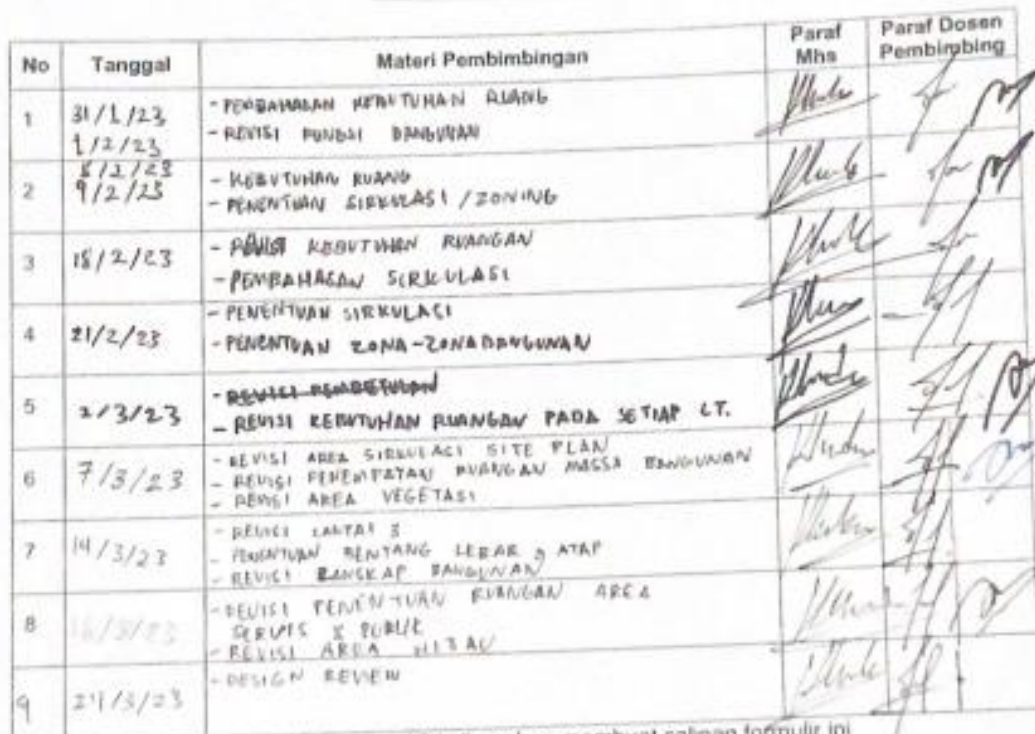 No Tanggal Materi Pembimbingan Paraf Mhs Paraf Dosen Pembimbing
1 31/1/23 - PEMBAHASAN KEBUTUHAN RUANG
1/2/23 - REVISI FUNGSI BANGUNAN
2 8/2/23 - KEBUTUHAN RUANG
9/2/23 - PENENTUAN SIRKULASI / ZONING
3 15/2/23 - REVISI KEBUTUHAN RUANGAN
- PEMBAHASAN SIRKULASI
4 21/2/23 - PENENTUAN SIRKULASI
- PENENTUAN ZONA-ZONA BANGUNAN
5 2/3/23 - REVISI
- REVISI KEBUTUHAN RUANGAN PADA SETIAP LT.
6 7/3/23 - REVISI AREA SIRKULASI SITE PLAN
- REVISI PENEMPATAN RUANGAN MASSA BANGUNAN
- REVISI AREA VEGETASI
7 14/3/23 - REVISI LANTAI 3
- PENENTUAN BENTANG LEBAR ATAP
- REVISI BANGUNAN
8 16/3/23 - REVISI PENENTUAN RUANGAN AREA
SERVIS & PUBLIK
- REVISI AREA HIJAU
9 - DESIGN REVIEW
membuat salinan formulir ini